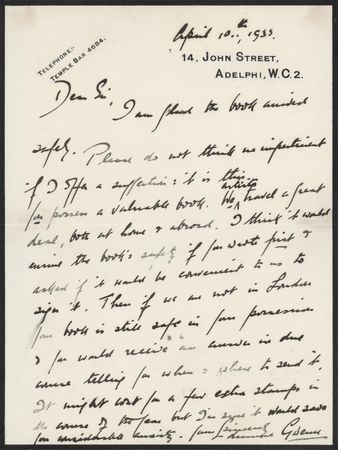 April 10th, 1933.
TELEPHONE:-
TEMPLE BAR 4684.
14, JOHN STREET,
ADELPHI, W.C.2.
Dear Sir,
I am glad the book arrived
safely. Please do not think me impertinent
if I offer a suggestion: it is this
You possess a valuable book. We artists travel a great
deal, both at home & abroad. I think it would
ensure the book's safety if you wrote first &
asked if it would be convenient to us to
sign it. Then if we are not in London
your book is still safe in your possession
& you would receive an answer in due
course telling you when & where to send it.
It might cost you a few extra stamps in
the course of the years but I'm sure it would save
you considerable anxiety. Yours sincerely
Gwenn